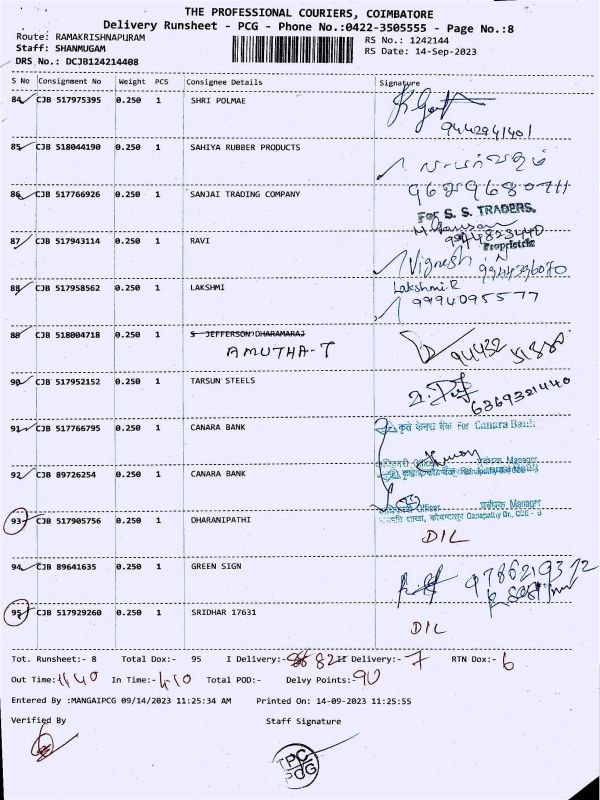 THE PROFESSIONAL COURIERS, COIMBATORE
Delivery Runsheet - PCG - Phone No.:0422-3505555 - Page No.:8
Route: RAMAKRISHNAPURAM
RS No.: 1242144
Staff: SHANMUGAM
RS Date: 14-Sep-2023
DRS No.: DCJB124214408
S No Consignment No Weight PCS Consignee Details Signature
84 CJB 517975395 0.250 1 SHRI POLMAE
9442941401
85 CJB 518044190 0.250 1 SAHIYA RUBBER PRODUCTS
86 CJB 517766926 0.250 1 SANJAI TRADING COMPANY
For S. S. TRADERS.
87 CJB 517943114 0.250 1 RAVI
9944823440
Proprietrix
Vignesh
88 CJB 517958562 0.250 1 LAKSHMI
Lakshmi R
9994095577
88 CJB 518004718 0.250 1 S JEFFERSON DHARAMARAJ
AMUTHA-T
94432 51880
90 CJB 517952152 0.250 1 TARSUN STEELS
6369321440
91 CJB 517766795 0.250 1 CANARA BANK
कृते केनरा बैंक For Canara Bank
92 CJB 89726254 0.250 1 CANARA BANK
Officer प्रबंधक Manager
93 CJB 517905756 0.250 1 DHARANIPATHI
DIL
94 CJB 89641635 0.250 1 GREEN SIGN
9786219372
95 CJB 517929260 0.250 1 SRIDHAR 17631
DIL
Tot. Runsheet:- 8 Total Dox:- 95 I Delivery:- 82 II Delivery:- 7 RTN Dox:- 6
Out Time: 1140 In Time:- 410 Total POD:- Delvy Points:- 90
Entered By :MANGAIPCG 09/14/2023 11:25:34 AM Printed On: 14-09-2023 11:25:55
Verified By Staff Signature
TPC
PCG